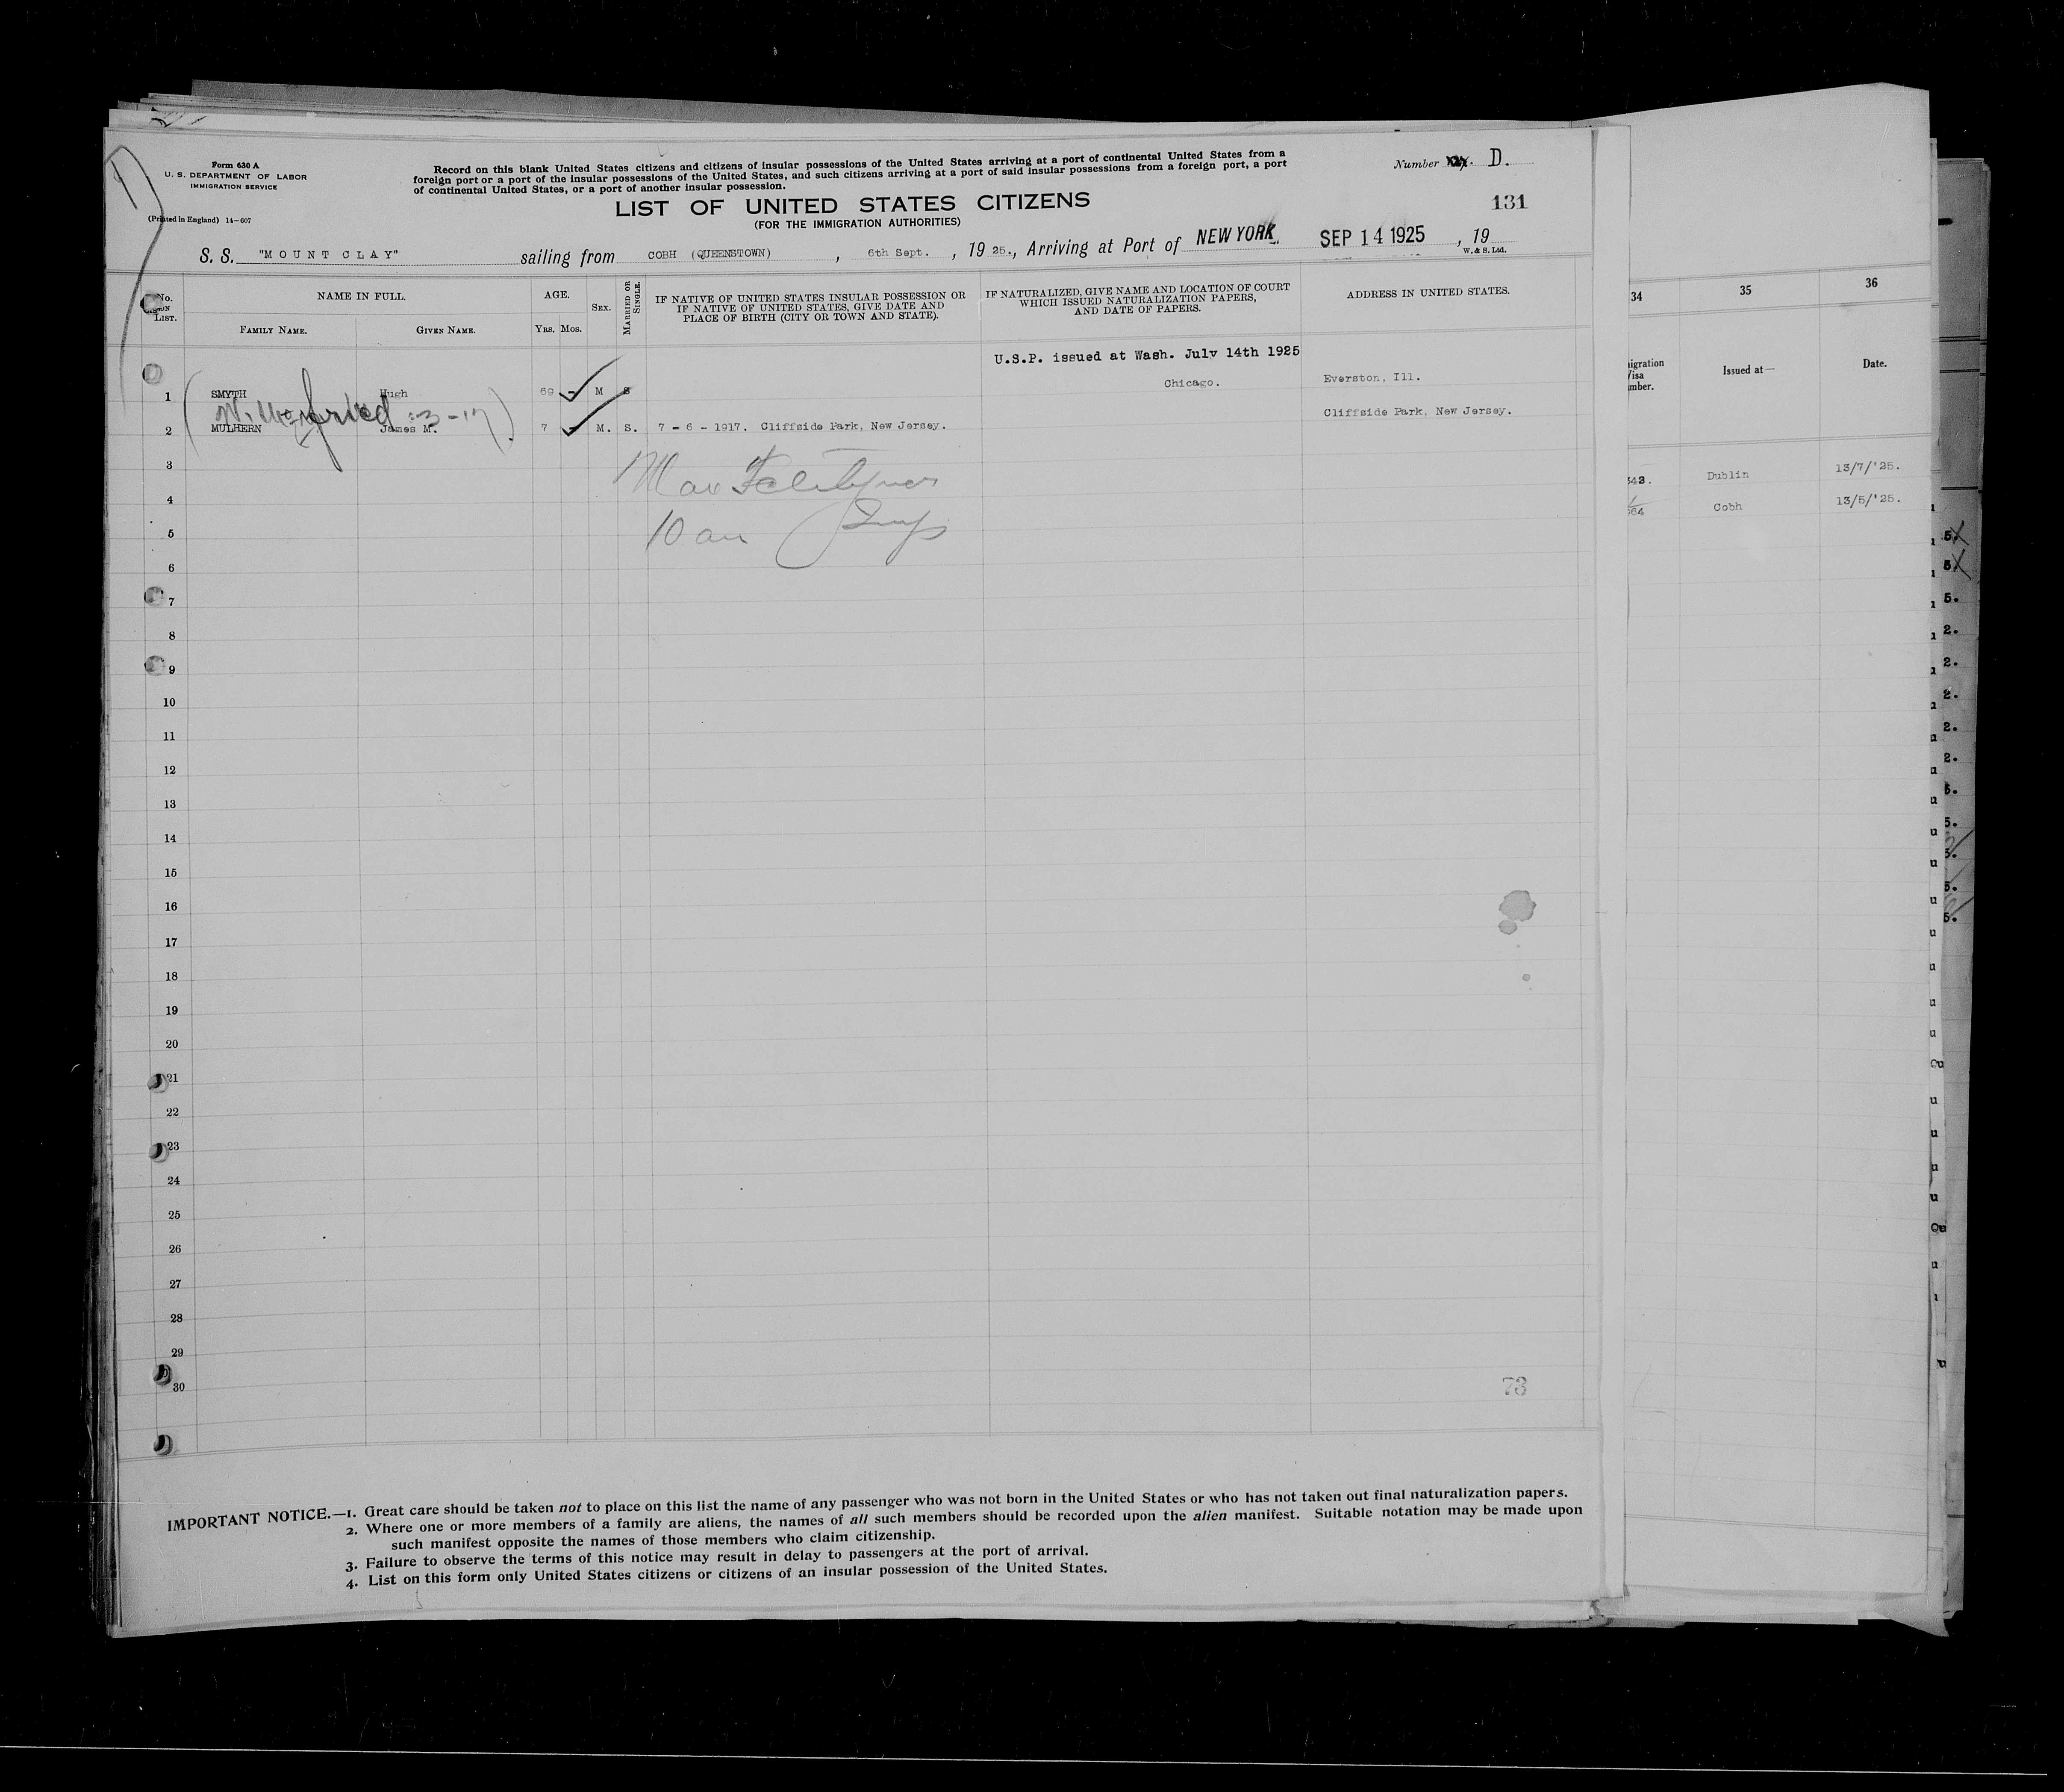 Form 630 A
U. S. DEPARTMENT OF LABOR
IMMIGRATION SERVICE
(Printed in England) 14-607
Record on this blank United States citizens and citizens of insular possessions of the United States arriving at a port of continental United States from a
foreign port or a port of the insular possessions of the United States, and such citizens arriving at a port of said insular possessions from a foreign port, a port
of continental United States, or a port of another insular possession.
Number D.
LIST OF UNITED STATES CITIZENS
131
(FOR THE IMMIGRATION AUTHORITIES)
S. S. "MOUNT CLAY" sailing from COBH (QUEENSTOWN), 6th Sept., 1925., Arriving at Port of NEW YORK. SEP 14 1925, 19
W. & S. Ltd.
No. ON LIST. NAME IN FULL. AGE. SEX. MARRIED OR SINGLE. IF NATIVE OF UNITED STATES INSULAR POSSESSION OR IF NATIVE OF UNITED STATES, GIVE DATE AND PLACE OF BIRTH (CITY OR TOWN AND STATE). IF NATURALIZED, GIVE NAME AND LOCATION OF COURT WHICH ISSUED NATURALIZATION PAPERS, AND DATE OF PAPERS. ADDRESS IN UNITED STATES.
FAMILY NAME. GIVEN NAME. YRS. MOS.
U.S.P. issued at Wash. July 14th 1925
1 SMYTH Hugh 69 - M S Chicago. Everston, Ill.
2 MULHERN James M. 7 - M. S. 7 - 6 - 1917. Cliffside Park, New Jersey. Cliffside Park, New Jersey.
3 Max
4
5 10 am Insp
6
7
8
9
10
11
12
13
14
15
16
17
18
19
20
21
22
23
24
25
26
27
28
29
30
73
IMPORTANT NOTICE.—1. Great care should be taken not to place on this list the name of any passenger who was not born in the United States or who has not taken out final naturalization papers.
2. Where one or more members of a family are aliens, the names of all such members should be recorded upon the alien manifest. Suitable notation may be made upon
such manifest opposite the names of those members who claim citizenship.
3. Failure to observe the terms of this notice may result in delay to passengers at the port of arrival.
4. List on this form only United States citizens or citizens of an insular possession of the United States.
34 35 36
Issued at— Date.
Dublin 13/7/'25.
Cobh 13/5/'25.